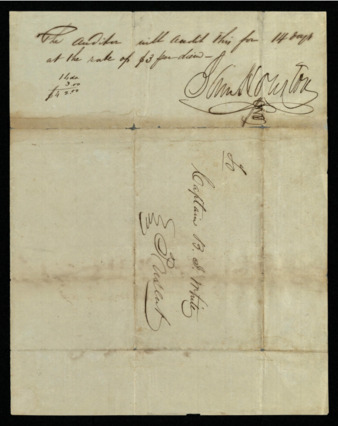 The Auditor will audit this for 14 days
at the rate of $3 per diem –
14
3.00
Sam Houston
To
Captain B. J. White
Present